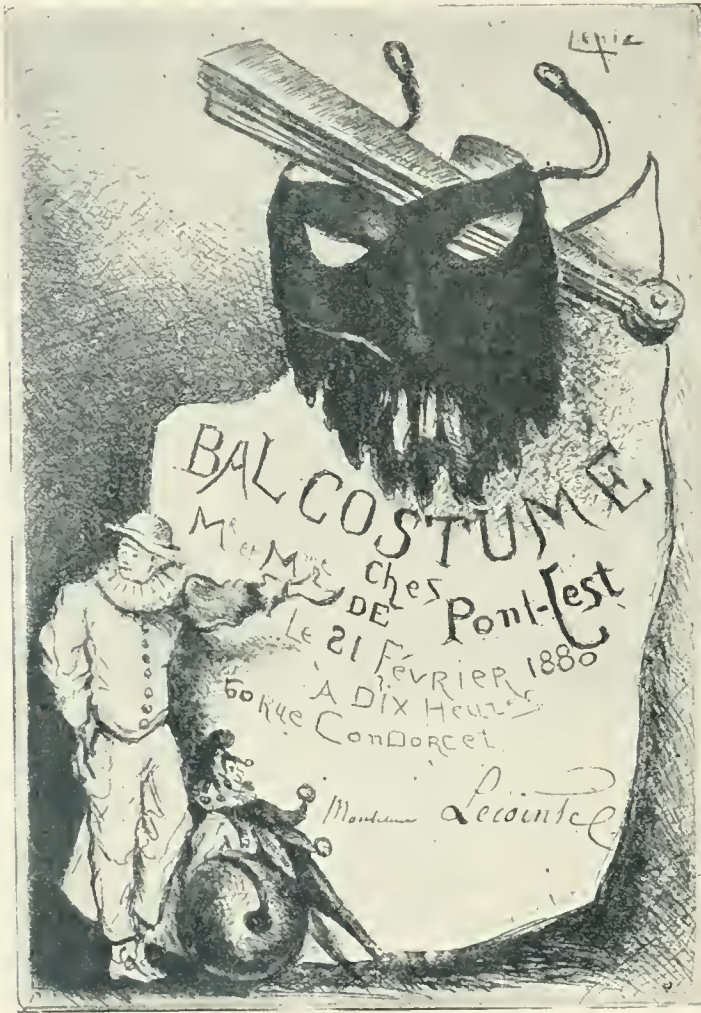 Lepic
BAL COSTUME
Mr et Mme ches
DE Pont-Jest
Le 21 Février 1880
A DIX Heures
60 Rue Condorcet
Monsieur Lecointe